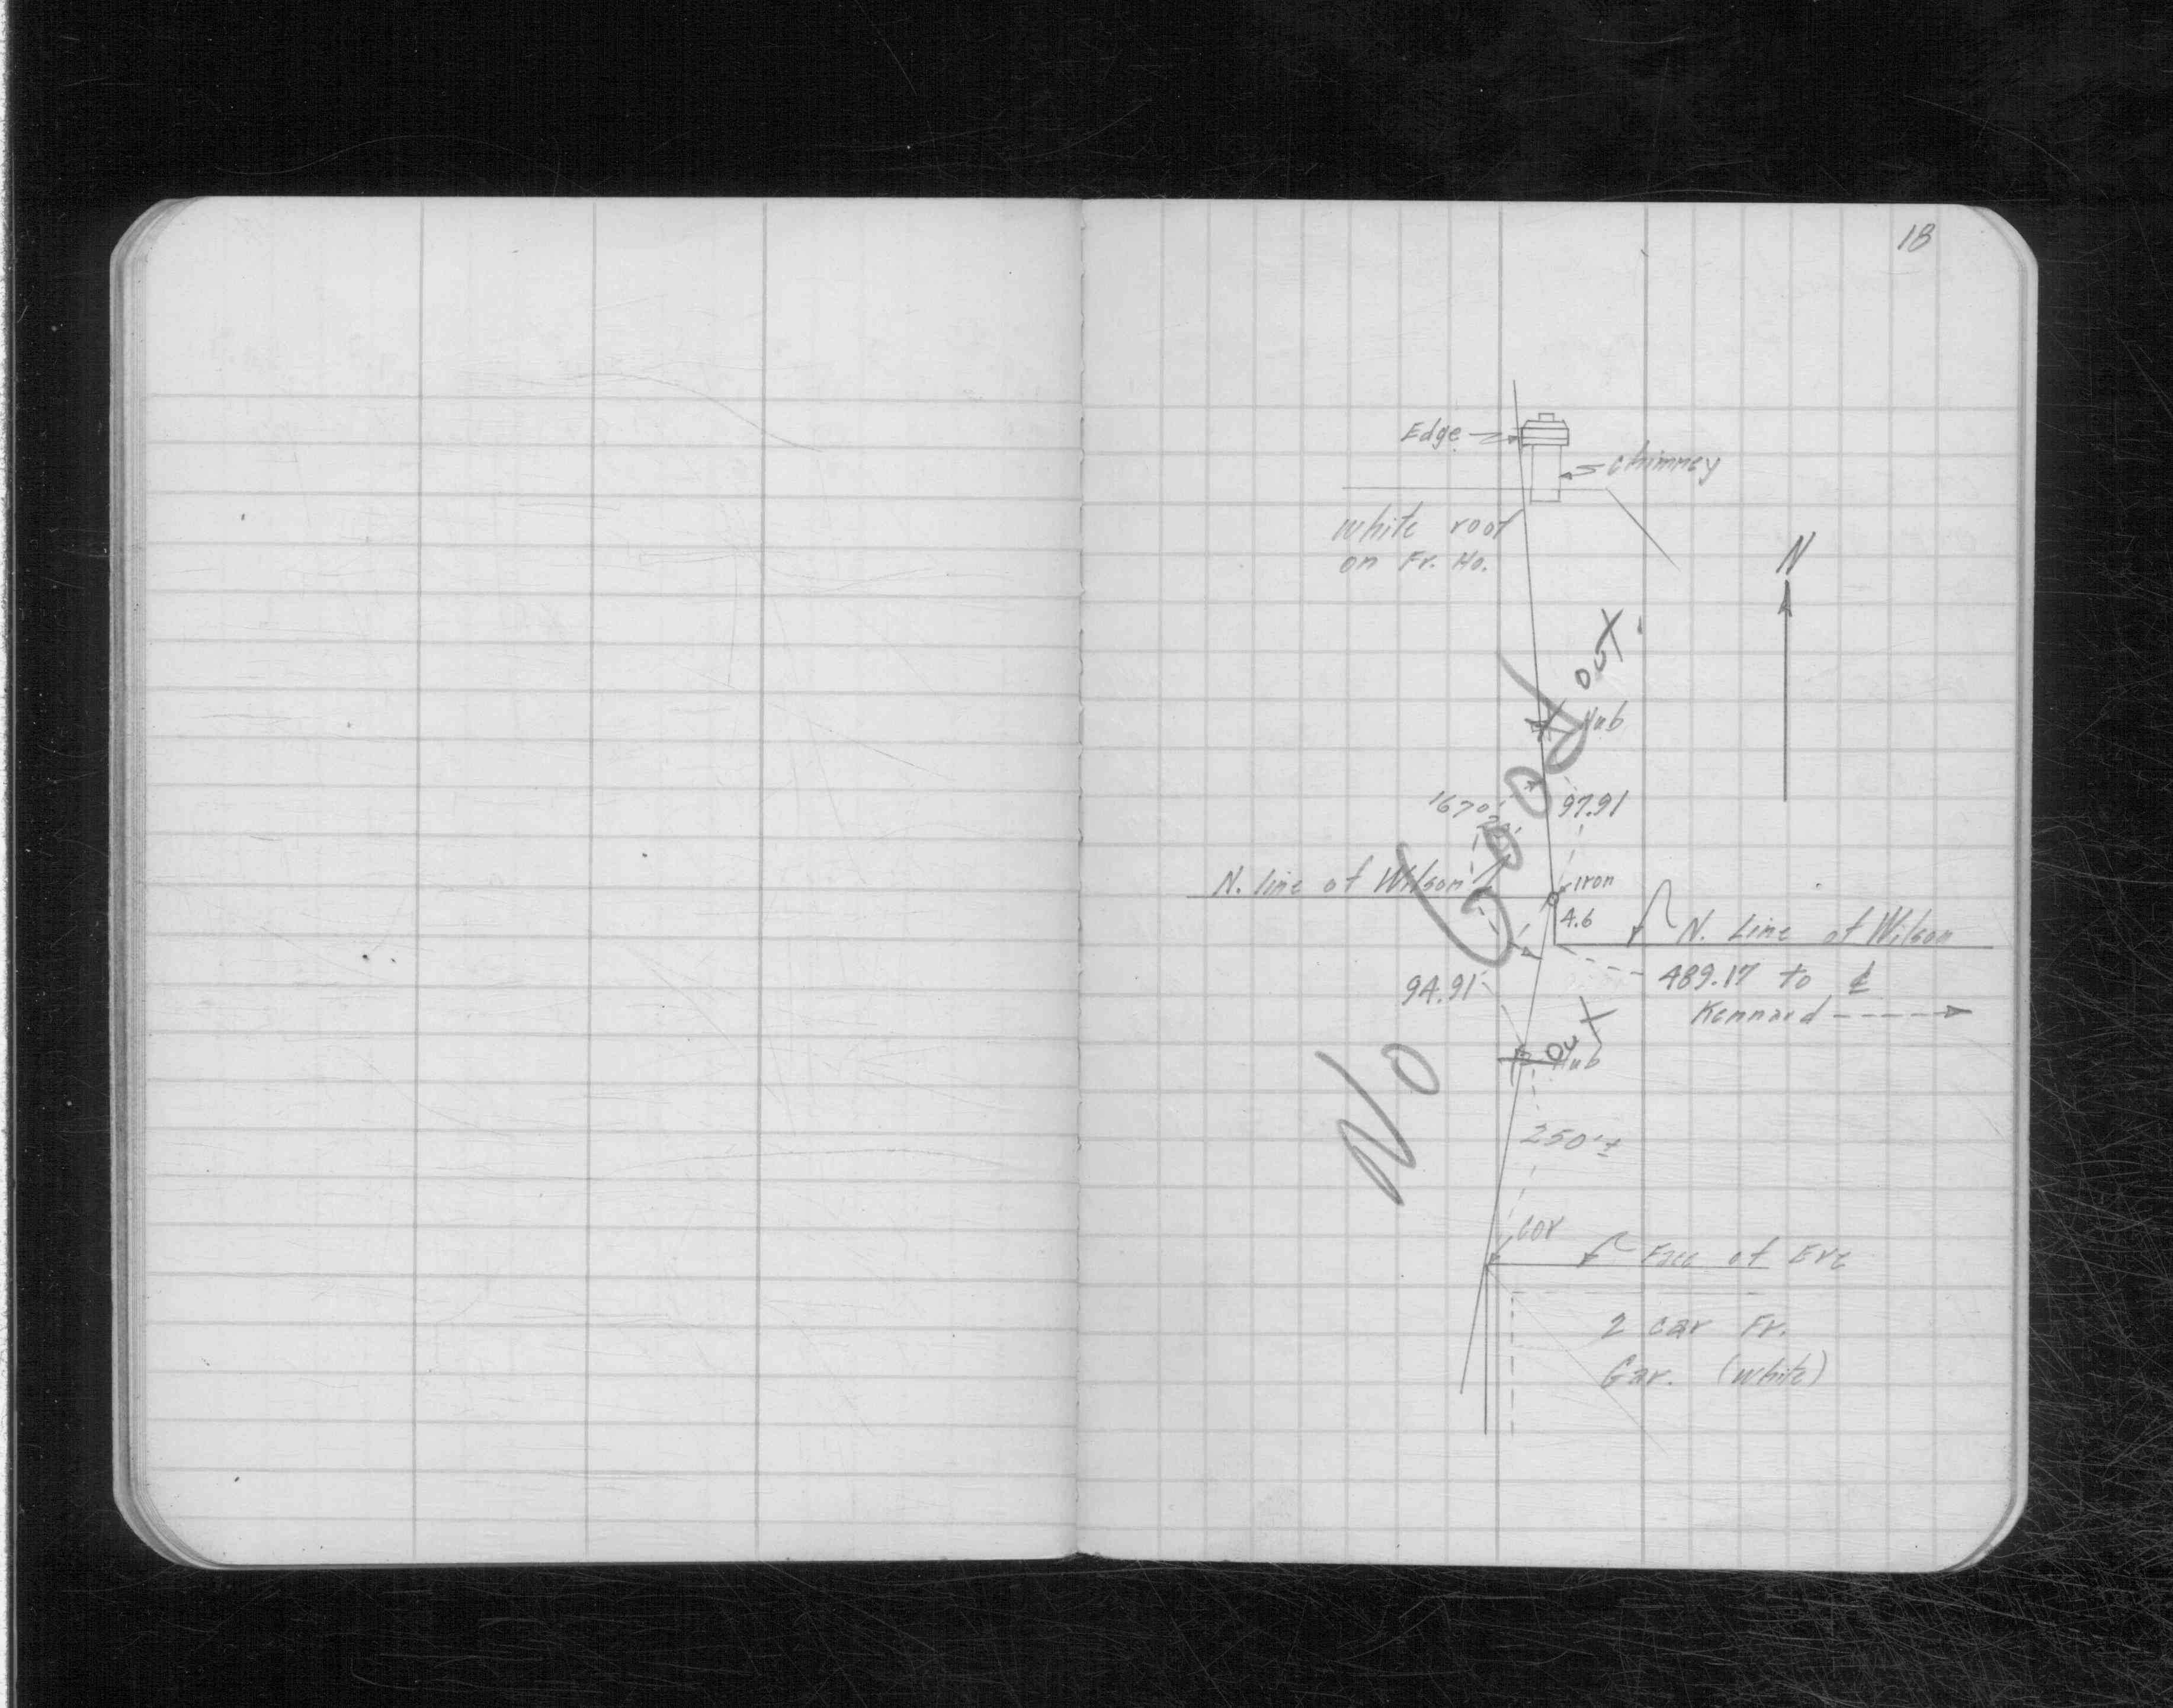 18
Edge
chimney
white roof
on Fr. Ho.
N
out
Hub
97.91
N. line of Wilson
Iron
4.6
N. Line of Wilson
94.91
489.17 to ℄
Kennard
No Good
Out
Hub
250'±
Cor
Face of Eve
2 Car Fr.
Gar. (White)